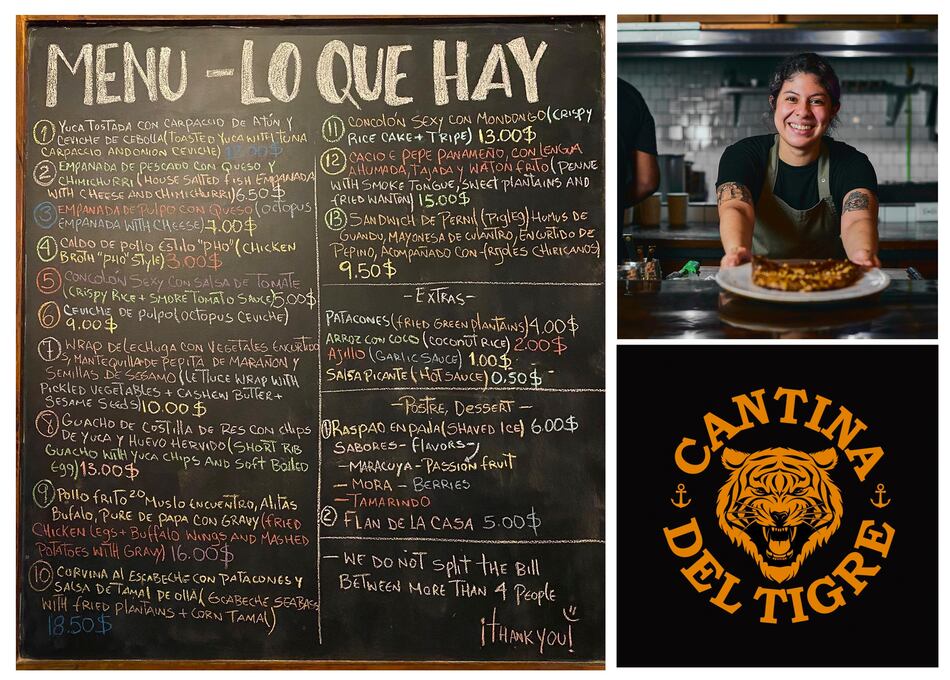 MENU - LO QUE HAY
① YUCA TOSTADA CON CARPACCIO DE ATÚN Y
CEVICHE DE CEBOLLA (TOASTED YUCA WITH TUNA
CARPACCIO AND ONION CEVICHE)
② EMPANADA DE PESCADO CON QUESO Y
CHIMICHURRI (HOUSE SALTED FISH EMPANADA
WITH CHEESE AND CHIMICHURRI) 6.50 $
③ EMPANADA DE PULPO CON QUESO (OCTOPUS
EMPANADA WITH CHEESE) 7.00$
④ CALDO DE POLLO ESTILO "PHO" (CHICKEN
BROTH "PHO" STYLE) 3.00$
⑤ CONCOLÓN SEXY CON SALSA DE TOMATE
(CRISPY RICE + SMOKE TOMATO SAUCE) 5.00$
⑥ CEVICHE DE PULPO (OCTOPUS CEVICHE)
9.00$
⑦ WRAP DE LECHUGA CON VEGETALES ENCURTIDO
S, MANTEQUILLA DE PEPITA DE MARAÑON Y
SEMILLAS DE SÉSAMO (LETTUCE WRAP WITH
PICKLED VEGETABLES + CASHEW BUTTER +
SESAME SEEDS) 10.00 $
⑧ GUACHO DE COSTILLA DE RES CON CHIPS
DE YUCA Y HUEVO HERVIDO (SHORT RIB
GUACHO WITH YUCA CHIPS AND SOFT BOILED
EGG) 13.00$
⑨ POLLO FRITO "20" MUSLO ENCUENTRO, ALITAS
BUFALO, PURE DE PAPA CON GRAVY (FRIED
CHICKEN LEGS + BUFFALO WINGS AND MASHED
POTATOES WITH GRAVY) 16.00$
⑩ CORVINA AL ESCABECHE CON PATACONES Y
SALSA DE TAMAL DE OLLA (ESCABECHE SEABASS
WITH FRIED PLANTAINS + CORN TAMAL)
18.50$
⑪ CONCOLÓN SEXY CON MONDONGO (CRISPY
RICE CAKE + TRIPE) 13.00$
⑫ CACIO E PEPE PANAMEÑO, CON LENGUA
AHUMADA, TAJADA Y WATON FRITO (PENNE
WITH SMOKE TONGUE, SWEET PLANTAINS AND
FRIED WANTON) 15.00$
⑬ SANDWICH DE PERNIL (PIGLEG) HUMUS DE
GUANDU, MAYONESA DE CULANTRO, ENCURTIDO DE
PEPINO, ACOMPAÑADO CON FRIJOLES CHIRICANOS)
9.50$
- EXTRAS -
PATACONES (FRIED GREEN PLANTAINS) 4.00$
ARROZ CON COCO (COCONUT RICE) 2.00$
AJILLO (GARLIC SAUCE) 1.00$
SALSA PICANTE (HOT SAUCE) 0.50$
- POSTRE, DESSERT -
① RASPAO EN PAILA (SHAVED ICE) 6.00$
SABORES - FLAVORS -
- MARACUYA - PASSION FRUIT
- MORA - BERRIES
- TAMARINDO
② FLAN DE LA CASA 5.00$
- WE DO NOT SPLIT THE BILL
BETWEEN MORE THAN 4 PEOPLE
¡THANK YOU!
CANTINA
DEL TIGRE